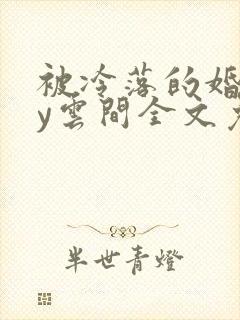 被冷落的婚
y雲間全文
半世青燈